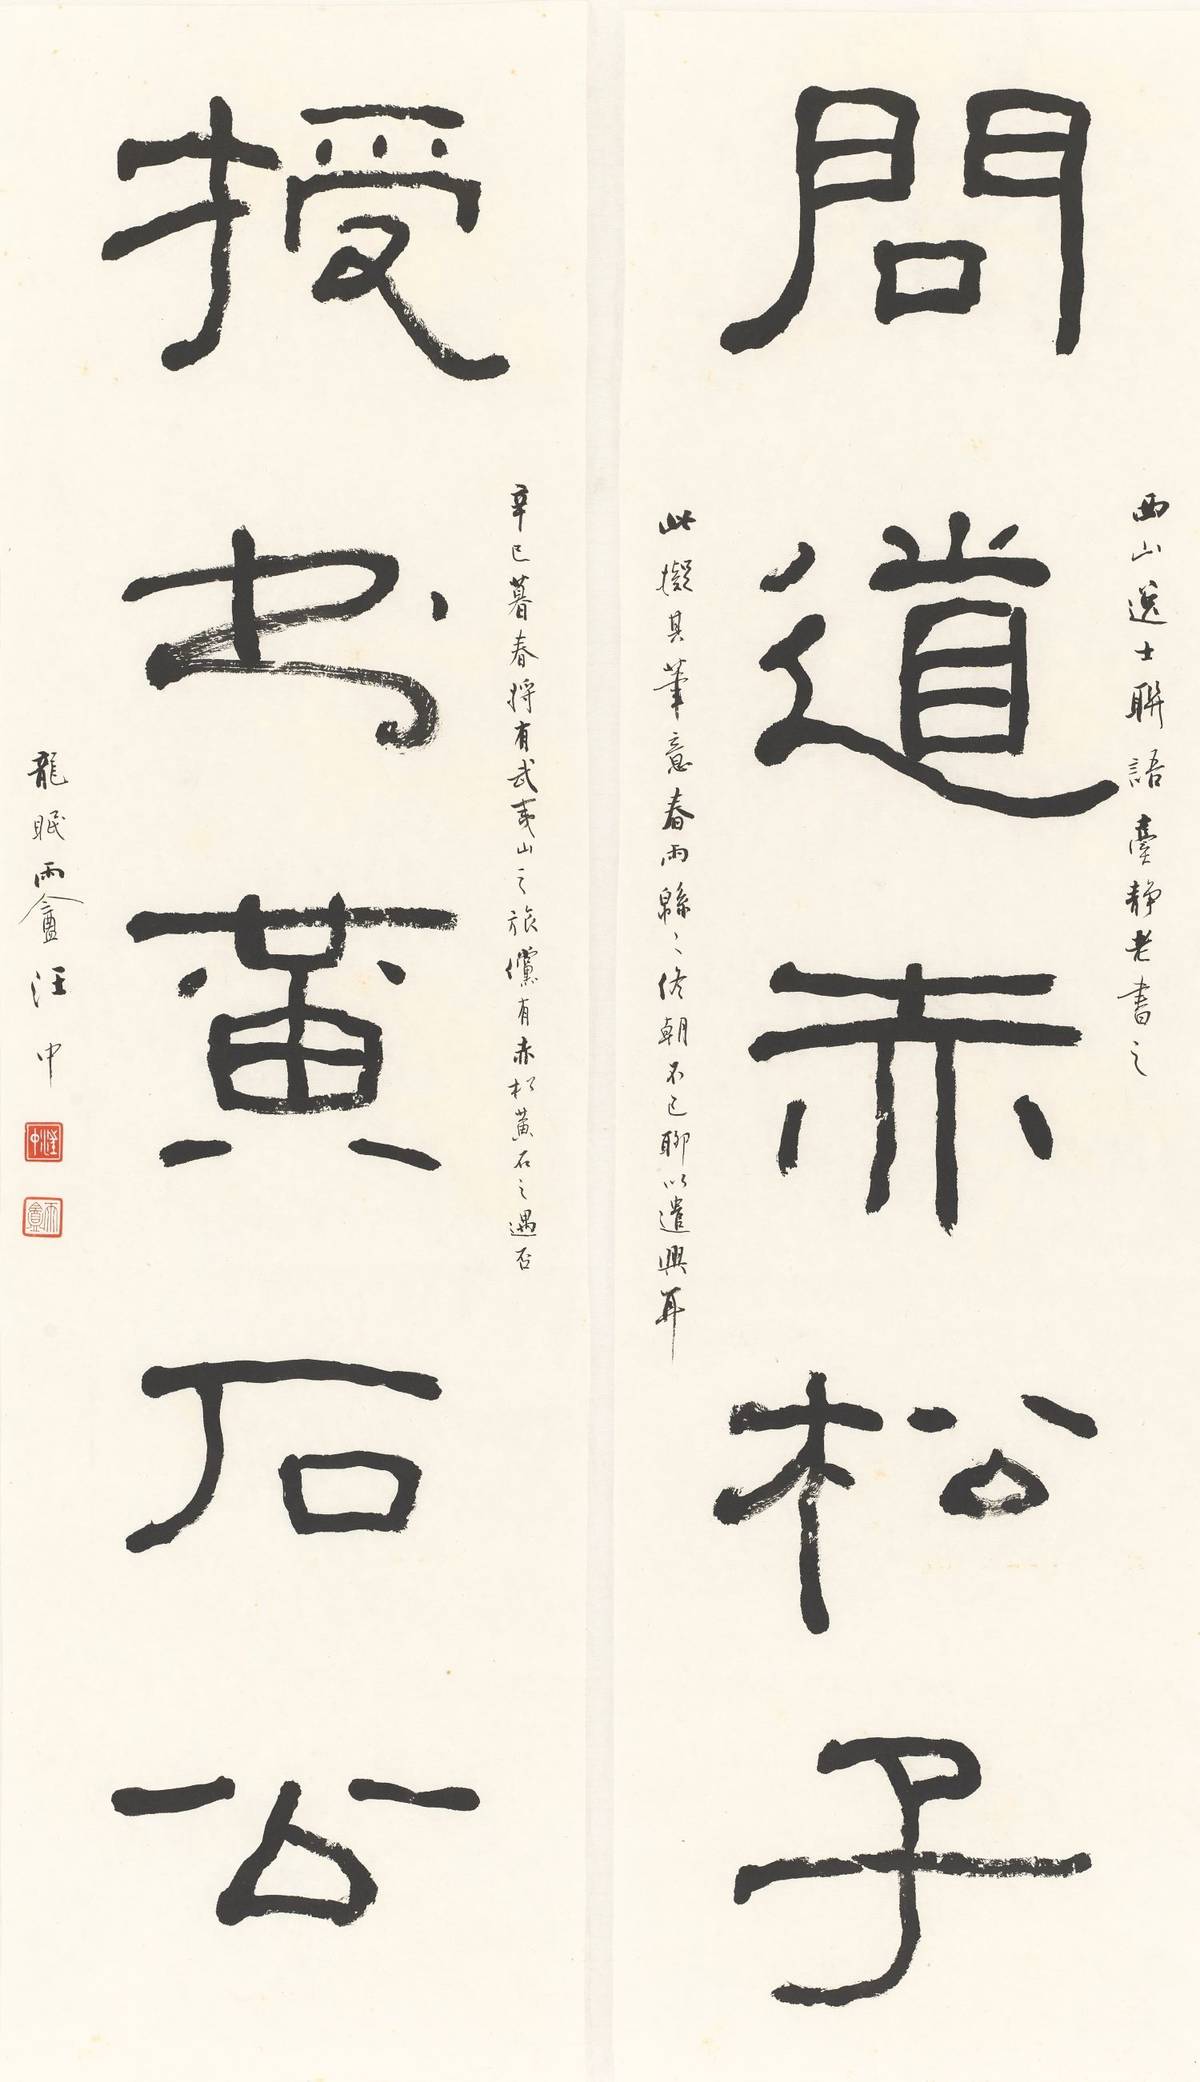 問道赤松子
西山逸士聯語臺靜老書之
此擬其筆意春雨綿綿終朝不已聊以遣興耳
授书黃石公
辛巳暮春將有武夷山之旅儻有赤松黃石之遇否
龍眠雨盦汪中
汪中
雨盦